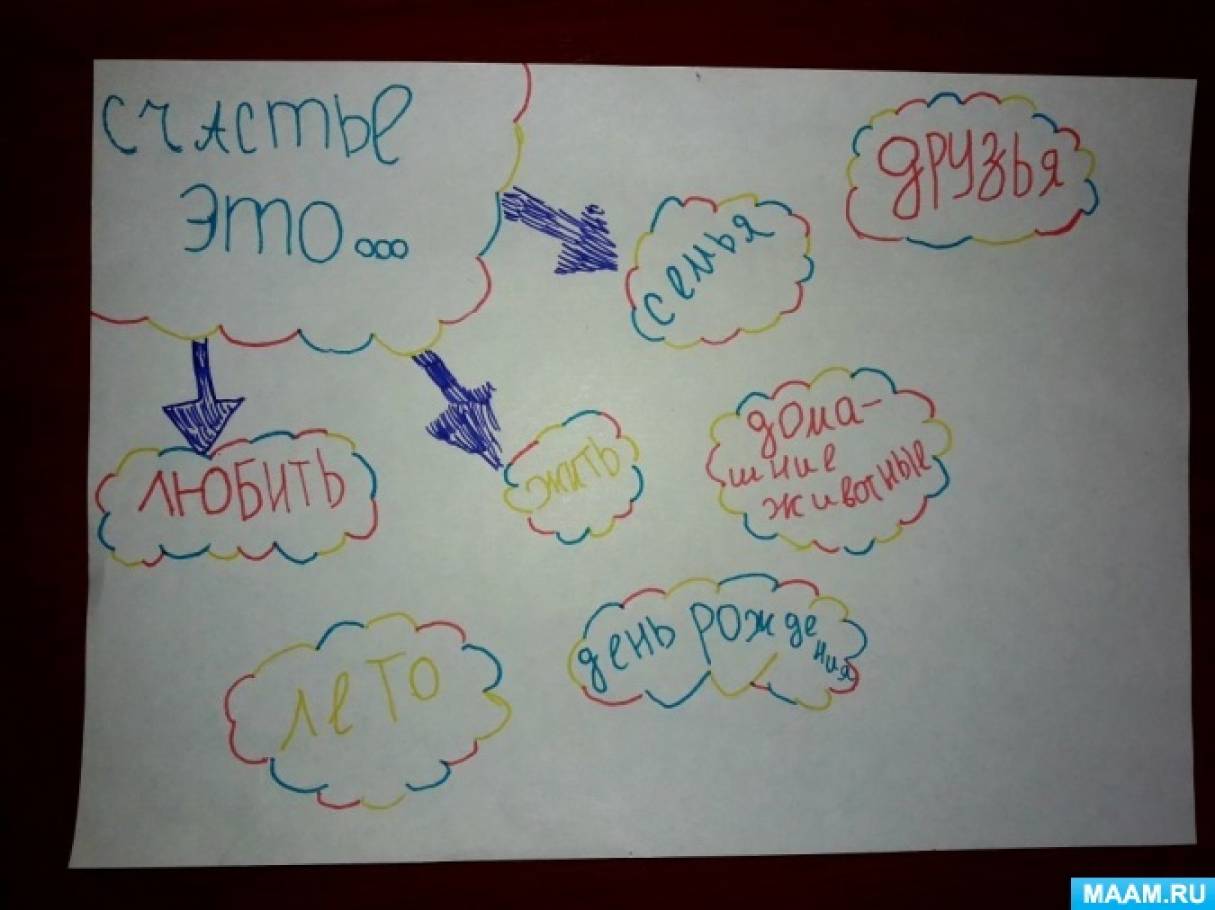 счастье
это...
друзья
семья
ЛЮБИТЬ
жить
дома-
шние
животные
день рожде
ния
лето
MAAM.RU